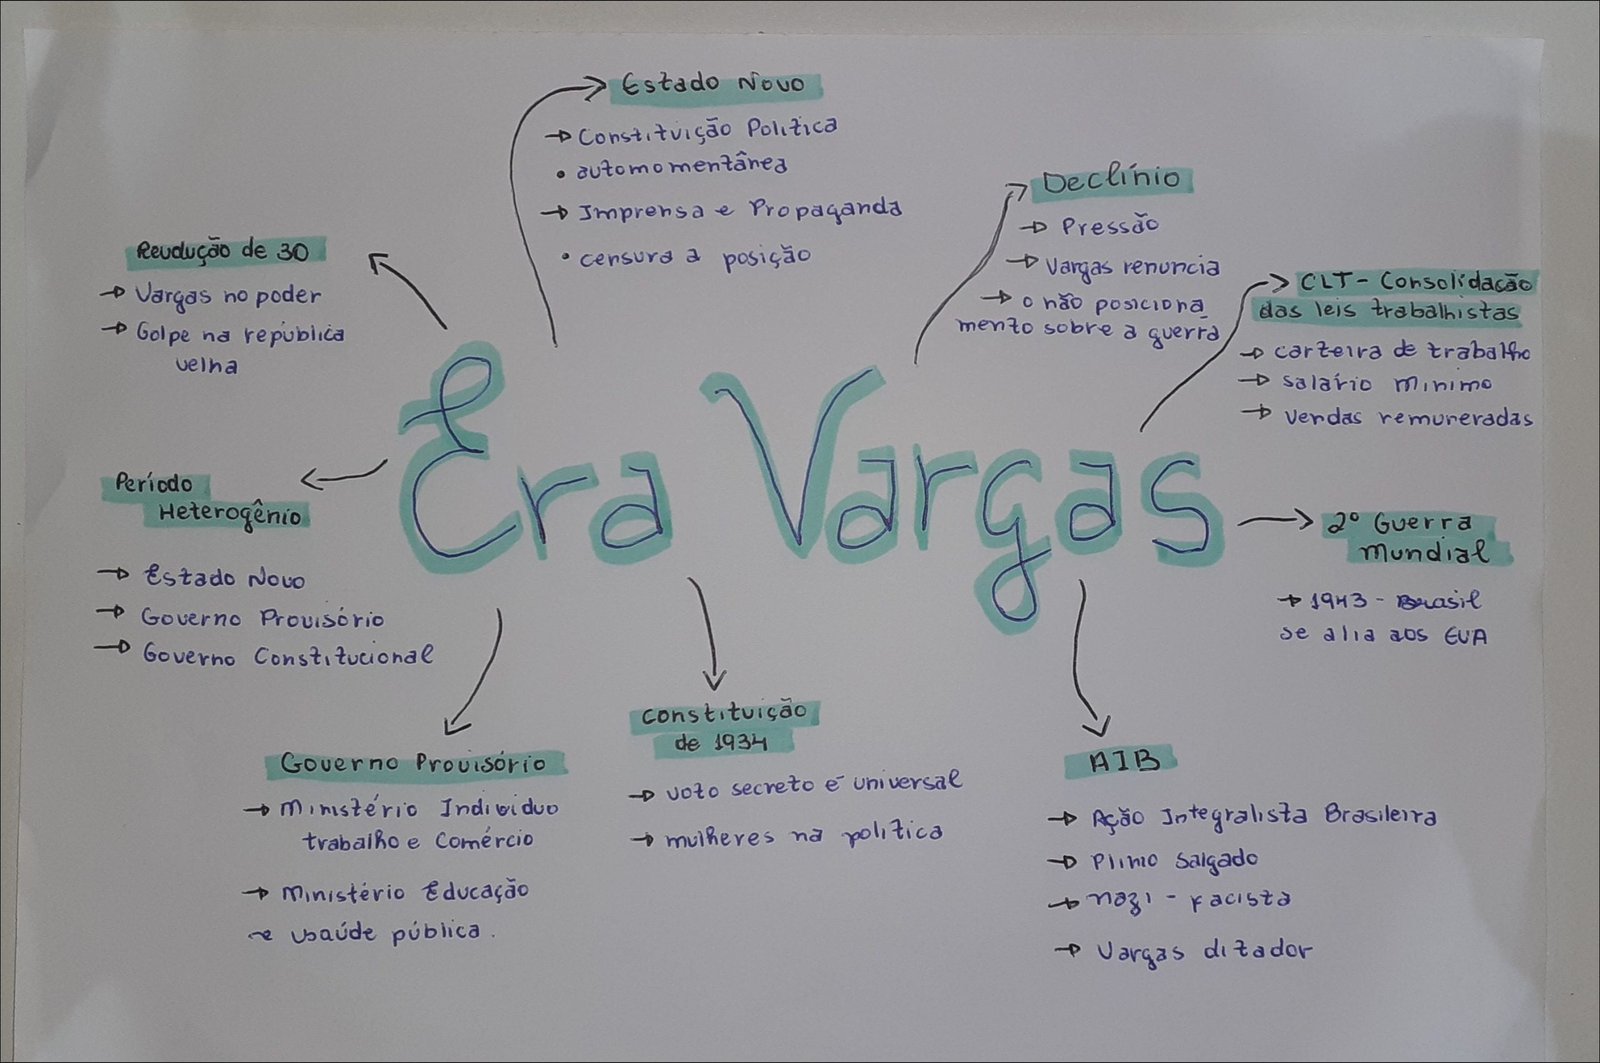 Estado Novo
→ Constituição Politica
• automomentânea
→ Imprensa e Propaganda
• censura a posição
Declínio
→ Pressão
→ Vargas renuncia
→ o não posiciona
mento sobre a guerra
Revdução de 30
→ Vargas no poder
→ Golpe na república
velha
CLT - Consolidação
das leis trabalhistas
→ carteira de trabalho
→ salário minimo
→ vendas remuneradas
Era Vargas
Período
Heterogênio
→ Estado Novo
→ Governo Provisório
→ Governo Constitucional
2º Guerra
Mundial
→ 1943 - Brasil
se alia aos EUA
Governo Provisório
→ Ministério Individuo
trabalho e Comércio
→ Ministério Educação
e saúde pública.
Constituição
de 1934
→ voto secreto e universal
→ mulheres na política
AIB
→ Ação Integralista Brasileira
→ Plinio Salgado
→ nazi - facista
→ Vargas ditador